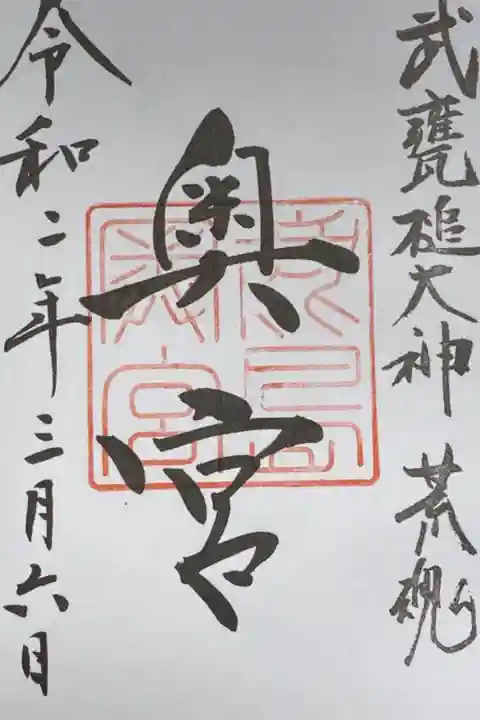 武甕槌大神 荒魂
奥宮
令和二年三月六日